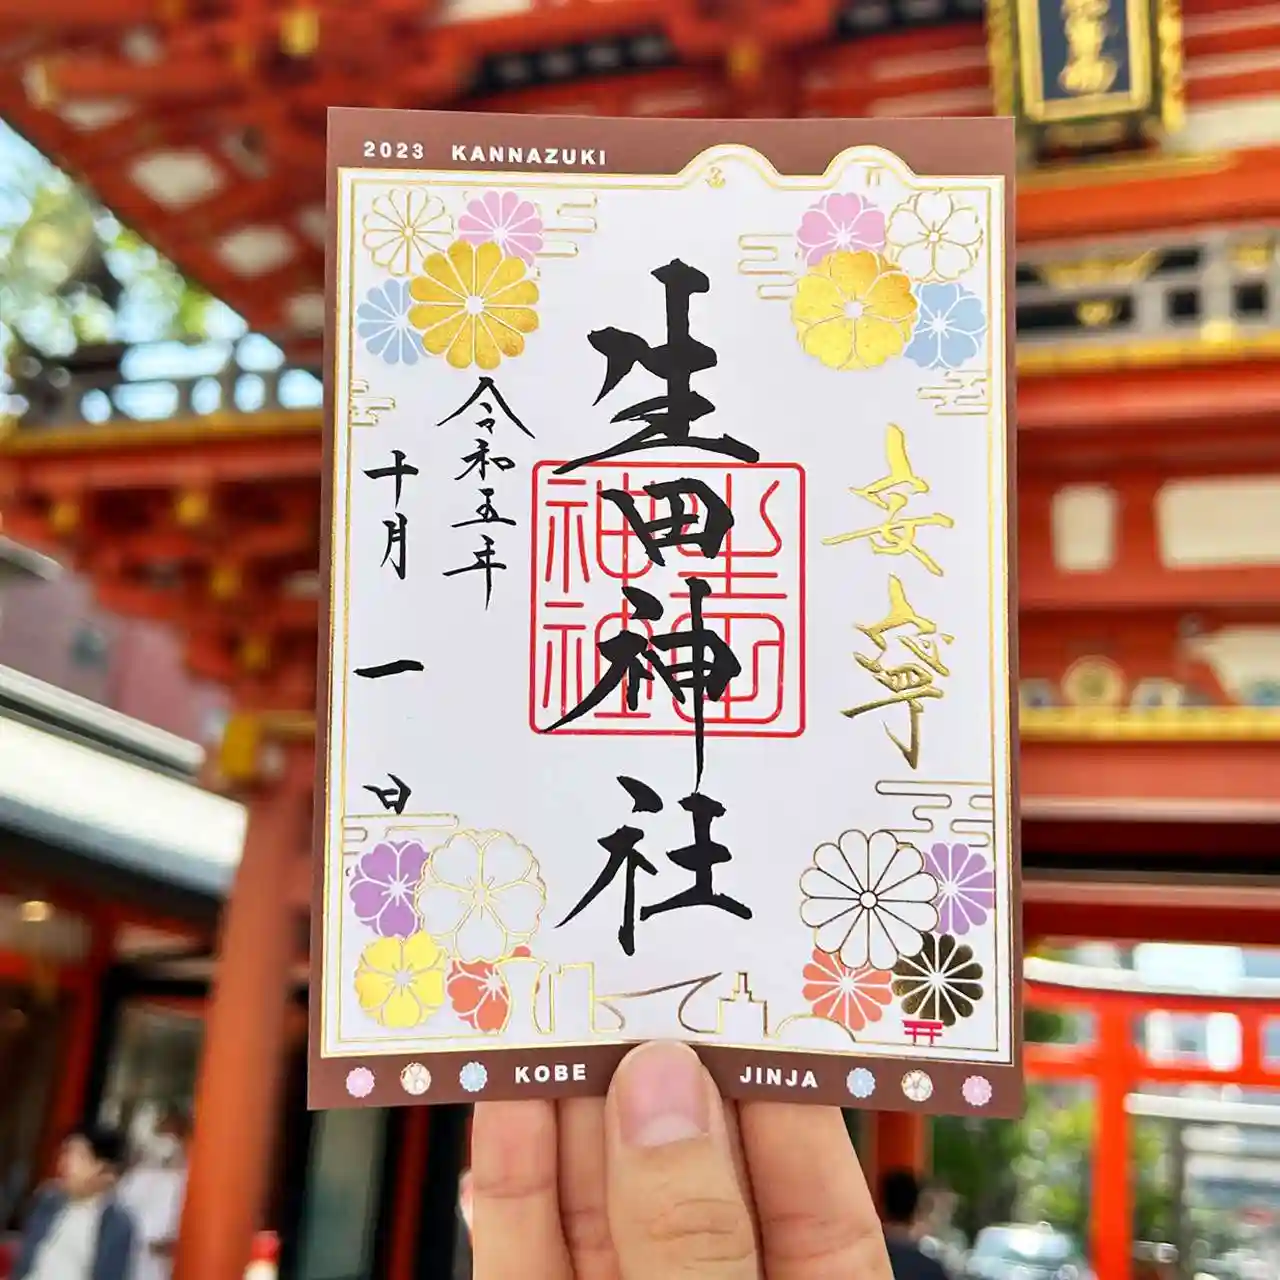 2023 KANNAZUKI
安寧
生田神社
生田神社
令和五年
十月一日
KOBE JINJA